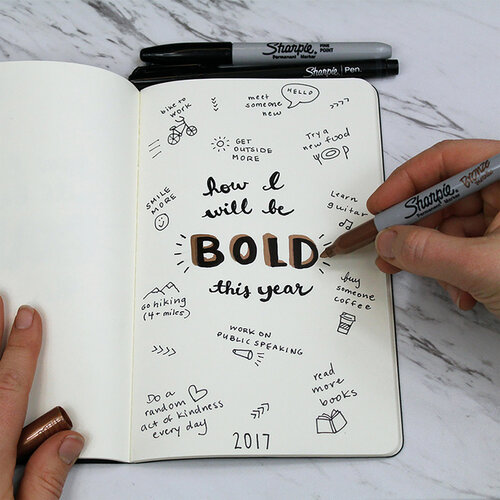 Sharpie. FINE POINT
Permanent Marker
Sharpie. Pen.
bike to
work
meet
someone
new
HELLO
GET
OUTSIDE
MORE
Try a
new food
SMILE
MORE
how I
will be
BOLD
this year
Learn
guitar
Sharpie
Permanent Marker
Bronze
GO hiking
(4+ miles)
buy
someone
coffee
WORK ON
PUBLIC SPEAKING
Do a
random
act of kindness
every day
read
more
books
2017